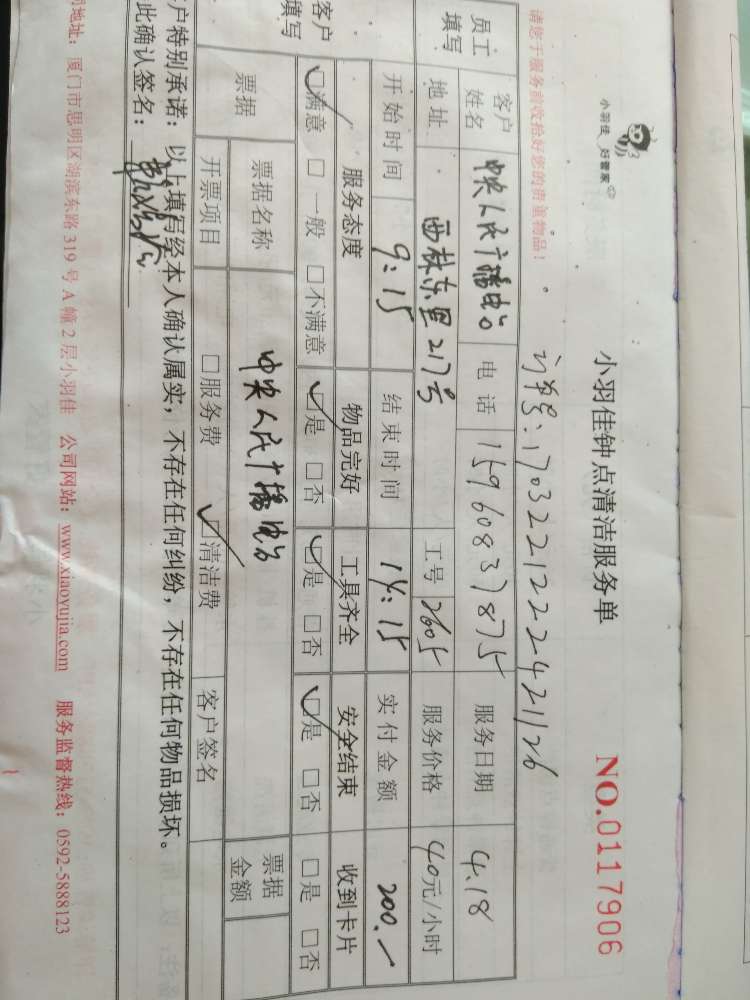 小羽佳 好管家
小羽佳钟点清洁服务单 NO.0117906
请您于服务前收拾好您的贵重物品！
订单号：1703221222421126
员工填写 客户姓名 中央人民广播电台 电话 15960837875 服务日期 4.18
地址 西林东里217号 工号 2605 服务价格 40元/小时
开始时间 9:15 结束时间 14:15 实付金额 200.-
客户填写 服务态度 物品完好 工具齐全 安全结束 收到卡片
☑满意 □一般 □不满意 ☑是 □否 ☑是 □否 ☑是 □否 □是 □否
票据 票据名称 中央人民广播电台 票据金额
开票项目 □服务费 ☑清洁费 客户签名
户特别承诺：以上填写经本人确认属实，不存在任何纠纷，不存在任何物品损坏。
此确认签名：
司地址：厦门市思明区湖滨东路319号A幢2层小羽佳 公司网站：www.xiaoyujia.com 服务监督热线：0592-5888123